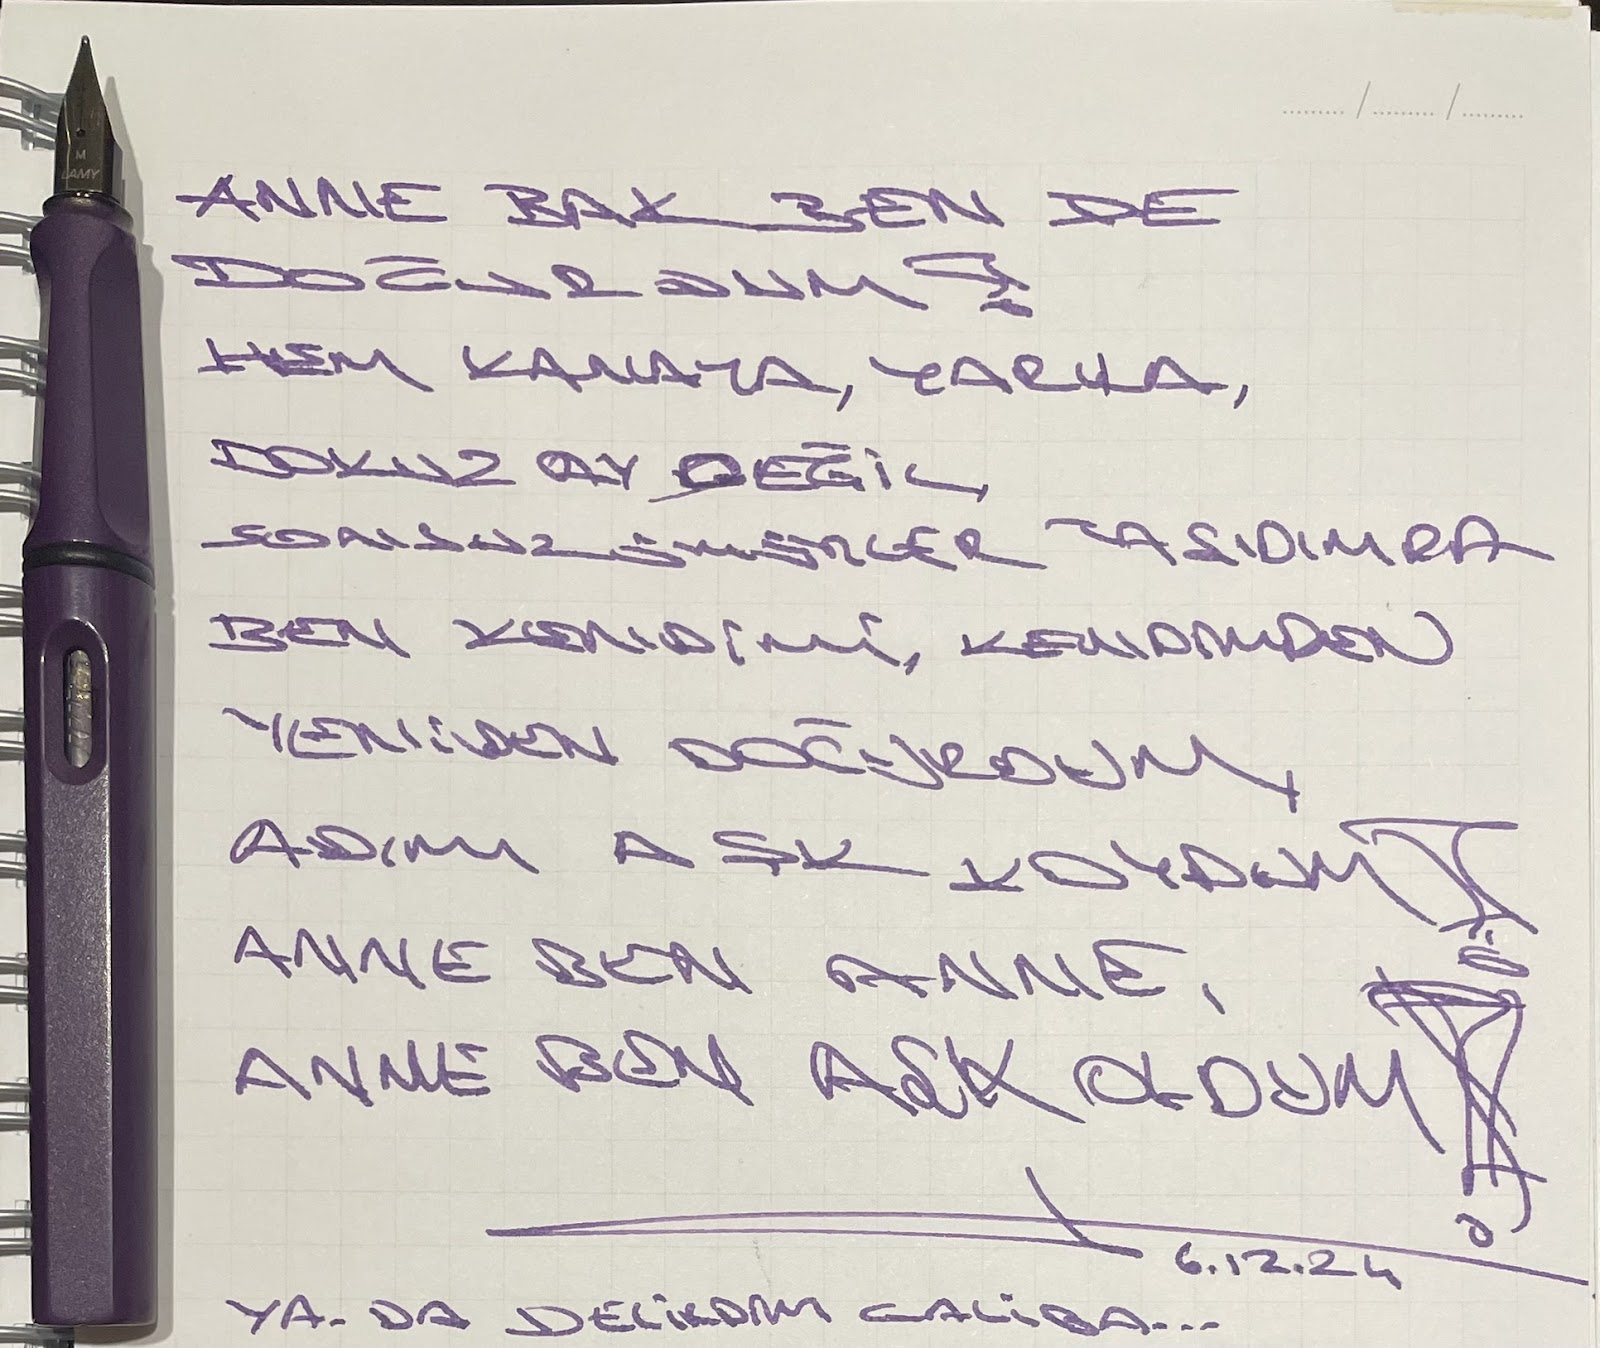 M
LAMY
ANNE BAK BEN DE
DOĞURDUM!
HEM KANAYA, YARILA,
DOKUZ AY DEĞİL,
TAŞIDIMDA
BEN KENDİMİ, KENDİMDEN
YENİDEN DOĞURDUM,
ADIMI AŞK KOYDUM!
ANNE BEN ANNE,
ANNE BEN AŞK OLDUM!
6.12.24
YA. DA DELİRDİM GALİBA...